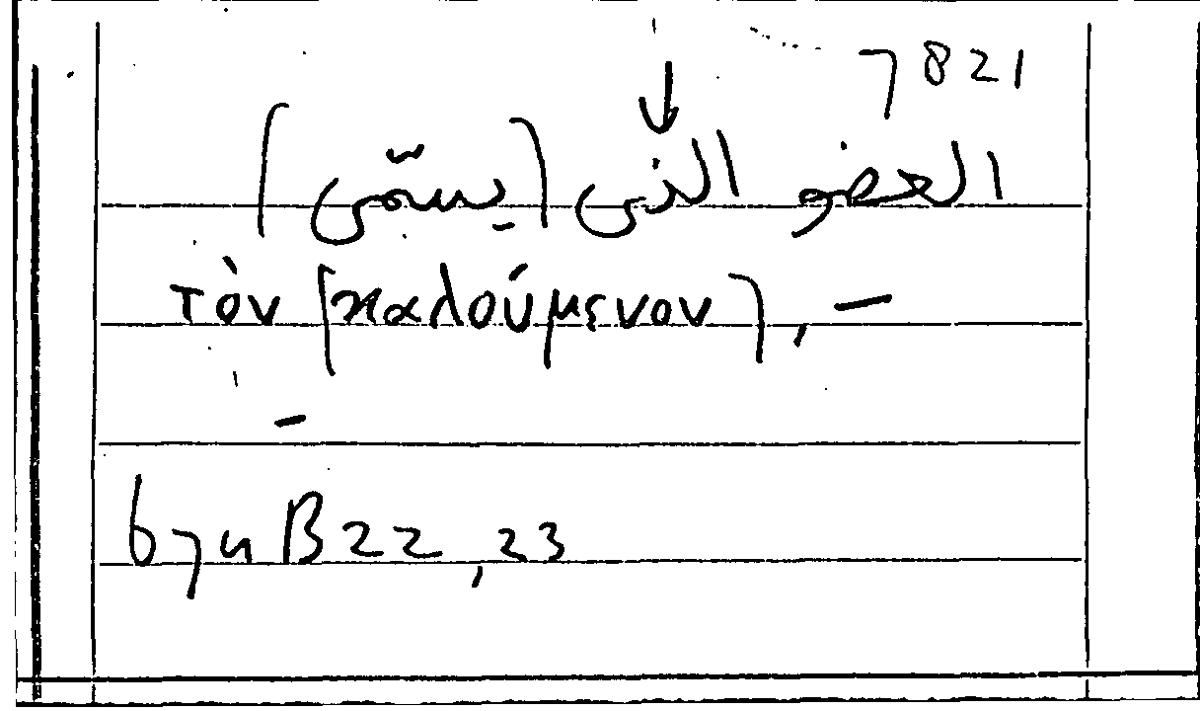 7821
العضو الذى (يسمّى)
τὸν [καλούμενον], –
–
674 B 22, 23